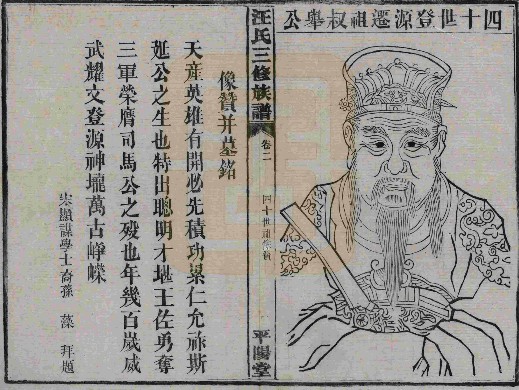 四十世登源遷祖叔舉公
汪氏三修族譜
卷二
四十世
平陽堂
像贊并墓銘
天產英雄有開必先積功累仁允祚斯
延公之生也特出聰明才堪王佐勇奪
三軍榮膺司馬公之歿也年幾百歲威
武耀文登源神壠萬古崢嶸
宋顯謨學士裔孫藻拜題